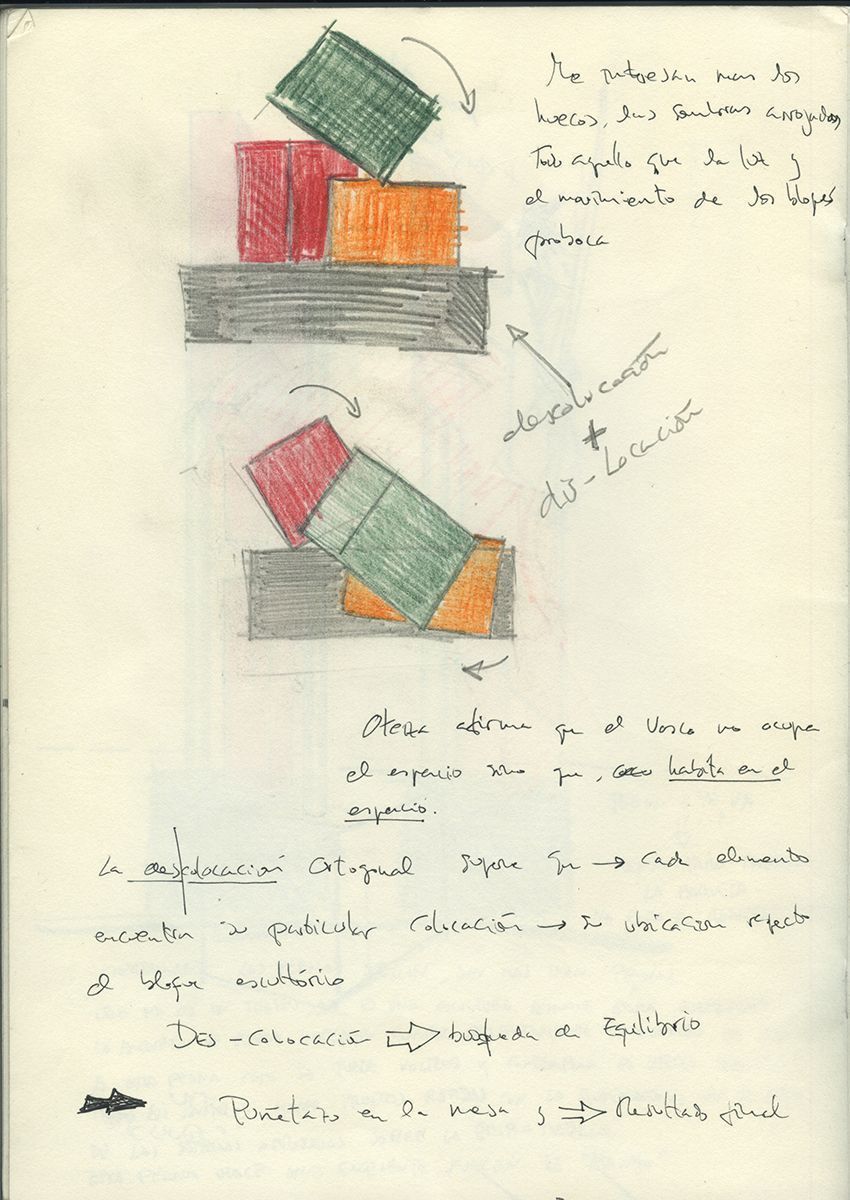 Me interesan mas los
huecos, las sombras arrojadas
Todo aquello que la luz y
el movimiento de los bloques
proboca
descolocación
+
dis-Locación
Oteiza afirma que el Vasco no ocupa
el espacio sino que, habita en el
espacio.
La descolocación Ortogonal supone que → cada elemento
encuentra su particular Colocación → su ubicacion respecto
al bloque escultórico
DES-colocación ⇒ busqueda de Equilibrio
Puñetazo en la mesa y ⇒ Resultado final